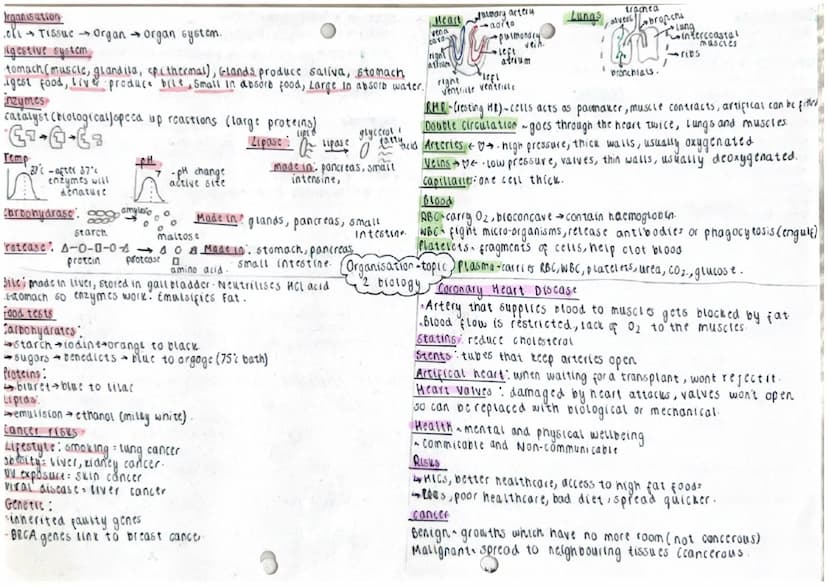 Organisation
cell → Tissue → Organ → Organ system.
Digestive system
stomach (muscle, glandula, epithermal), Glands produce saliva, stomach
digest food, liver produce bile, Small in absorb food, Large in absorb water.
Enzymes
catalyst (biological) speed up reactions (large proteins)
Lipase:
lipid
lipase
glycerol &
fatty
acid
made in: pancreas, small
intensine,
Temp
37°
-after 37°C
enzymes will
denature
pH
-pH change
active site
Carbohydrase:
starch
amylase
maltose
Made in: glands, pancreas, small
intestine.
Protease:
protein
protease
amino acid.
Made in: stomach, pancreas
small intestine.
Bile: made in liver, stored in gallbladder. Neutrilises HCl acid
in stomach so enzymes work. Emulsifies Fat.
Food tests
Carbohydrates:
→ starch → iodine → orange to black
→ sugars → benedicts → blue to argoge (75° bath)
Proteins:
→ biuret → blue to lilac
Lipids:
→ emulsion → ethanol (milky white).
Cancer risks
Lifestyle: smoking = lung cancer
obesity = liver, kidney cancer.
UV exposure = skin cancer
Viral disease = liver cancer
Genetic:
-inherited faulty genes
-BRCA genes link to breast cancer
Organisation-topic
2 biology
Heart
pulmonary artery
aorta
vena
cava
pulmonary
vein.
right
atrium
left
atrium
right
ventricle
left
ventricle
Lungs
trachea
alveoli
bronchi
lung
intercoastal
muscles
ribs
bronchials.
RHR - (resting HR) - cells acts as pacmaker, muscle contracts, artifical can be fitted
Double circulation - goes through the heart twice, lungs and muscles
Arteries ← → high pressure, thick walls, usually oxygenated
Veins → ← low pressure, valves, thin walls, usually deoxygenated.
Capillaries: one cell thick.
Blood
RBC - carry O₂, bioconcave → contain haemoglobin
WBC - fight micro-organisms, release antibodies or phagocytosis (engulf)
Platelets - fragments of cells, help clot blood
Plasma - carries RBC, WBC, platelets, urea, CO₂, glucose.
Coronary Heart Disease
• Artery that supplies blood to muscles gets blocked by fat
• Blood flow is restricted, lack of O₂ to the muscles
Statins: reduce cholesterol
Stents: tubes that keep arteries open
Artifical heart: when waiting for a transplant, wont reject it.
Heart Valves: damaged by heart attacks, valves won't open
so can be replaced with biological or mechanical.
Health - mental and physical wellbeing
- commicable and Non-communicable
Risks
↳ HICs, better healthcare, access to high fat foods
, poor healthcare, bad diet, spread quicker.
Cancer
Benign - growths which have no more room (not cancerous)
Malignant - spread to neighbouring tissues (cancerous.